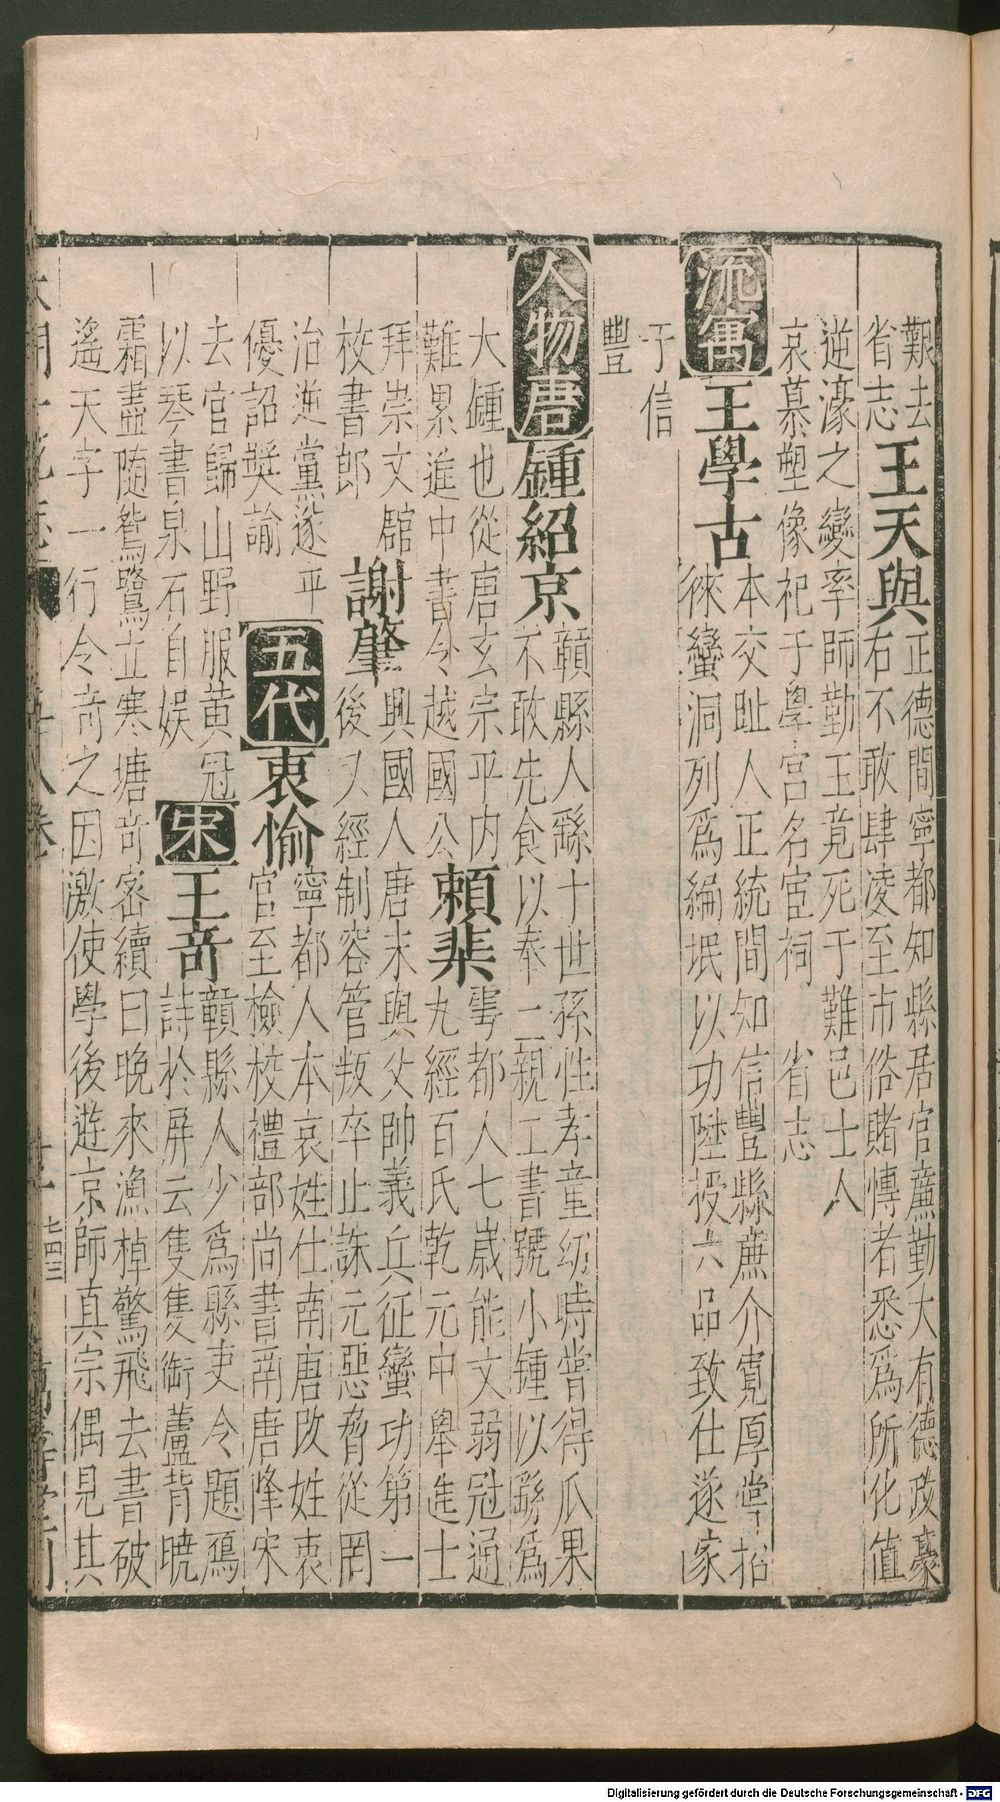 艱去
省志
王天與
正德間寧都知縣居官廉勤大有德政豪
右不敢肆凌至市俗賭愽者悉爲所化值
逆濠之變率師勤王竟死于難邑士人
哀慕塑像祀于學宮名宦祠　省志
流寓
王學古
本交趾人正統間知信豐縣廉介寬厚嘗招
徠蠻洞列爲編氓以功陞授六品致仕遂家
于信
豐
人物唐
鍾紹京
贛縣人繇十世孫性孝童幼時嘗得瓜果
不敢先食以奉二親工書號小鍾以繇爲
大鍾也從唐玄宗平内
難累進中書令越國公
賴棐
雩都人七歲能文弱冠通
九經百氏乾元中舉進士
拜崇文館
校書郎
謝肇
興國人唐末與父帥義兵征蠻功第一
後又經制容管叛卒止誅元惡脅從罔
治逆黨遂平
優詔奬諭
五代
衷愉
寧都人本哀姓仕南唐改姓衷
官至檢校禮部尚書南唐降宋
去官歸山野服黄冠
以琴書泉石自娱
宋
王竒
贛縣人少爲縣吏令題鴈
詩於屏云隻隻衘蘆背曉
霜盡随鴛鷺立寒塘竒密續曰晚來漁棹驚飛去書破
遙天字一行令竒之因激使學後遊京師真宗偶見其
七四三
Digitalisierung gefördert durch die Deutsche Forschungsgemeinschaft - DFG